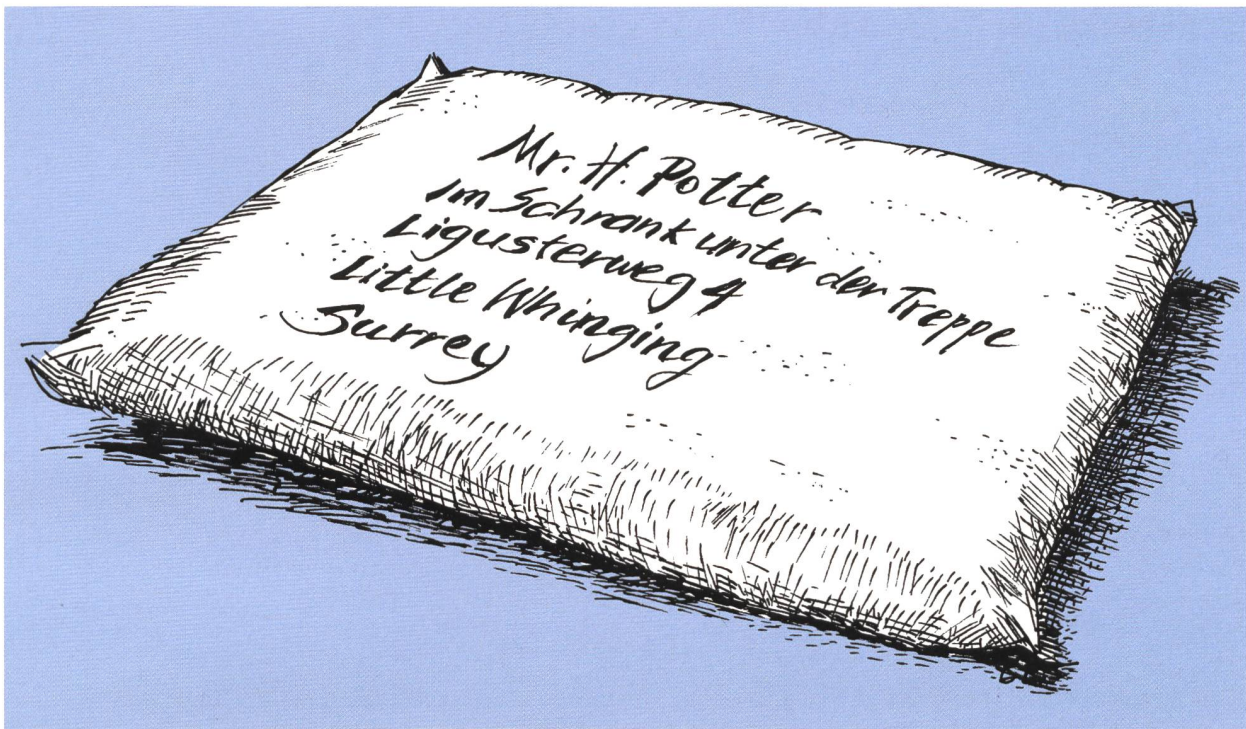 Mr. H. Potter
Im Schrank unter der Treppe
Ligusterweg 4
Little Whinging
Surrey